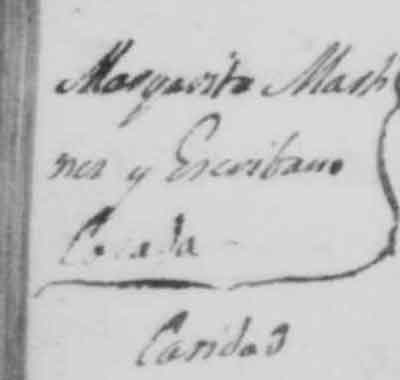 Margarita Marti
nez y Escribano
Casada
Caridad